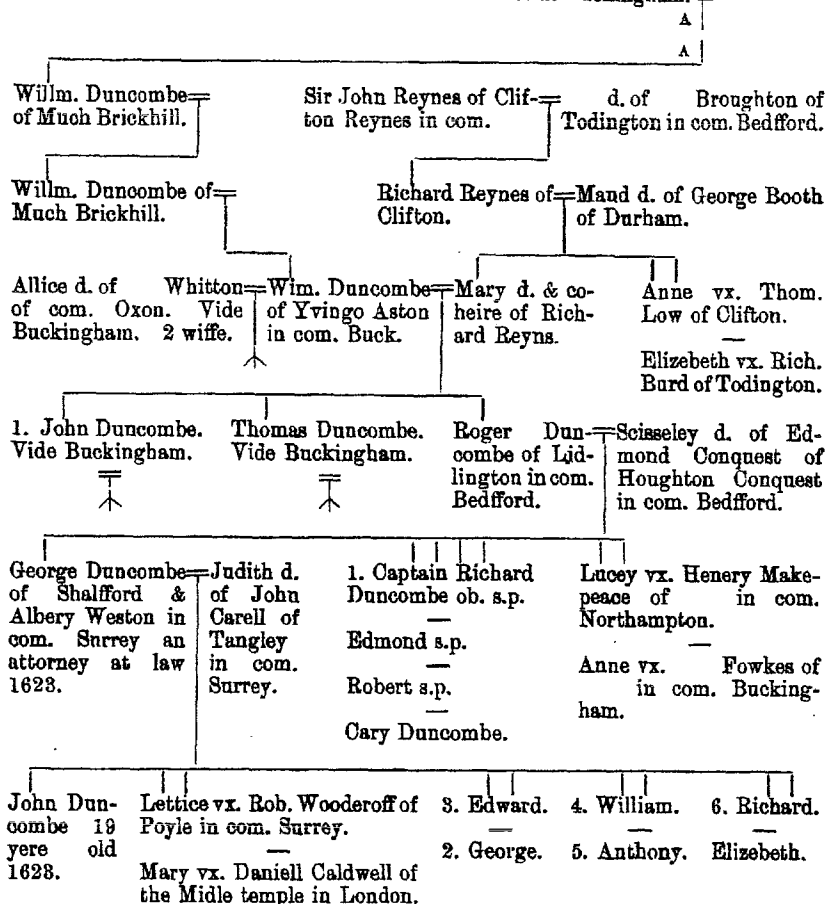 A
A
Willm. Duncombe
of Much Brickhill.
Sir John Reynes of Clif-
ton Reynes in com.
d. of Broughton of
Todington in com. Bedfford.
Willm. Duncombe of
Much Brickhill.
Richard Reynes of
Clifton.
Maud d. of George Booth
of Durham.
Allice d. of Whitton
of com. Oxon. Vide
Buckingham. 2 wiffe.
Wim. Duncombe
of Yvingo Aston
in com. Buck.
Mary d. & co-
heire of Rich-
ard Reyns.
Anne vx. Thom.
Low of Clifton.
—
Elizebeth vx. Rich.
Burd of Todington.
1. John Duncombe.
Vide Buckingham.
Thomas Duncombe.
Vide Buckingham.
Roger Dun-
combe of Lid-
lington in com.
Bedfford.
Scisseley d. of Ed-
mond Conquest of
Houghton Conquest
in com. Bedfford.
George Duncombe
of Shalfford &
Albery Weston in
com. Surrey an
attorney at law
1623.
Judith d.
of John
Carell of
Tangley
in com.
Surrey.
1. Captain Richard
Duncombe ob. s.p.
—
Edmond s.p.
—
Robert s.p.
—
Cary Duncombe.
Lucey vx. Henery Make-
peace of in com.
Northampton.
—
Anne vx. Fowkes of
in com. Bucking-
ham.
John Dun-
combe 19
yere old
1623.
Lettice vx. Rob. Wooderoff of
Poyle in com. Surrey.
—
Mary vx. Daniell Caldwell of
the Midle temple in London.
3. Edward.
—
2. George.
4. William.
—
5. Anthony.
6. Richard.
—
Elizebeth.